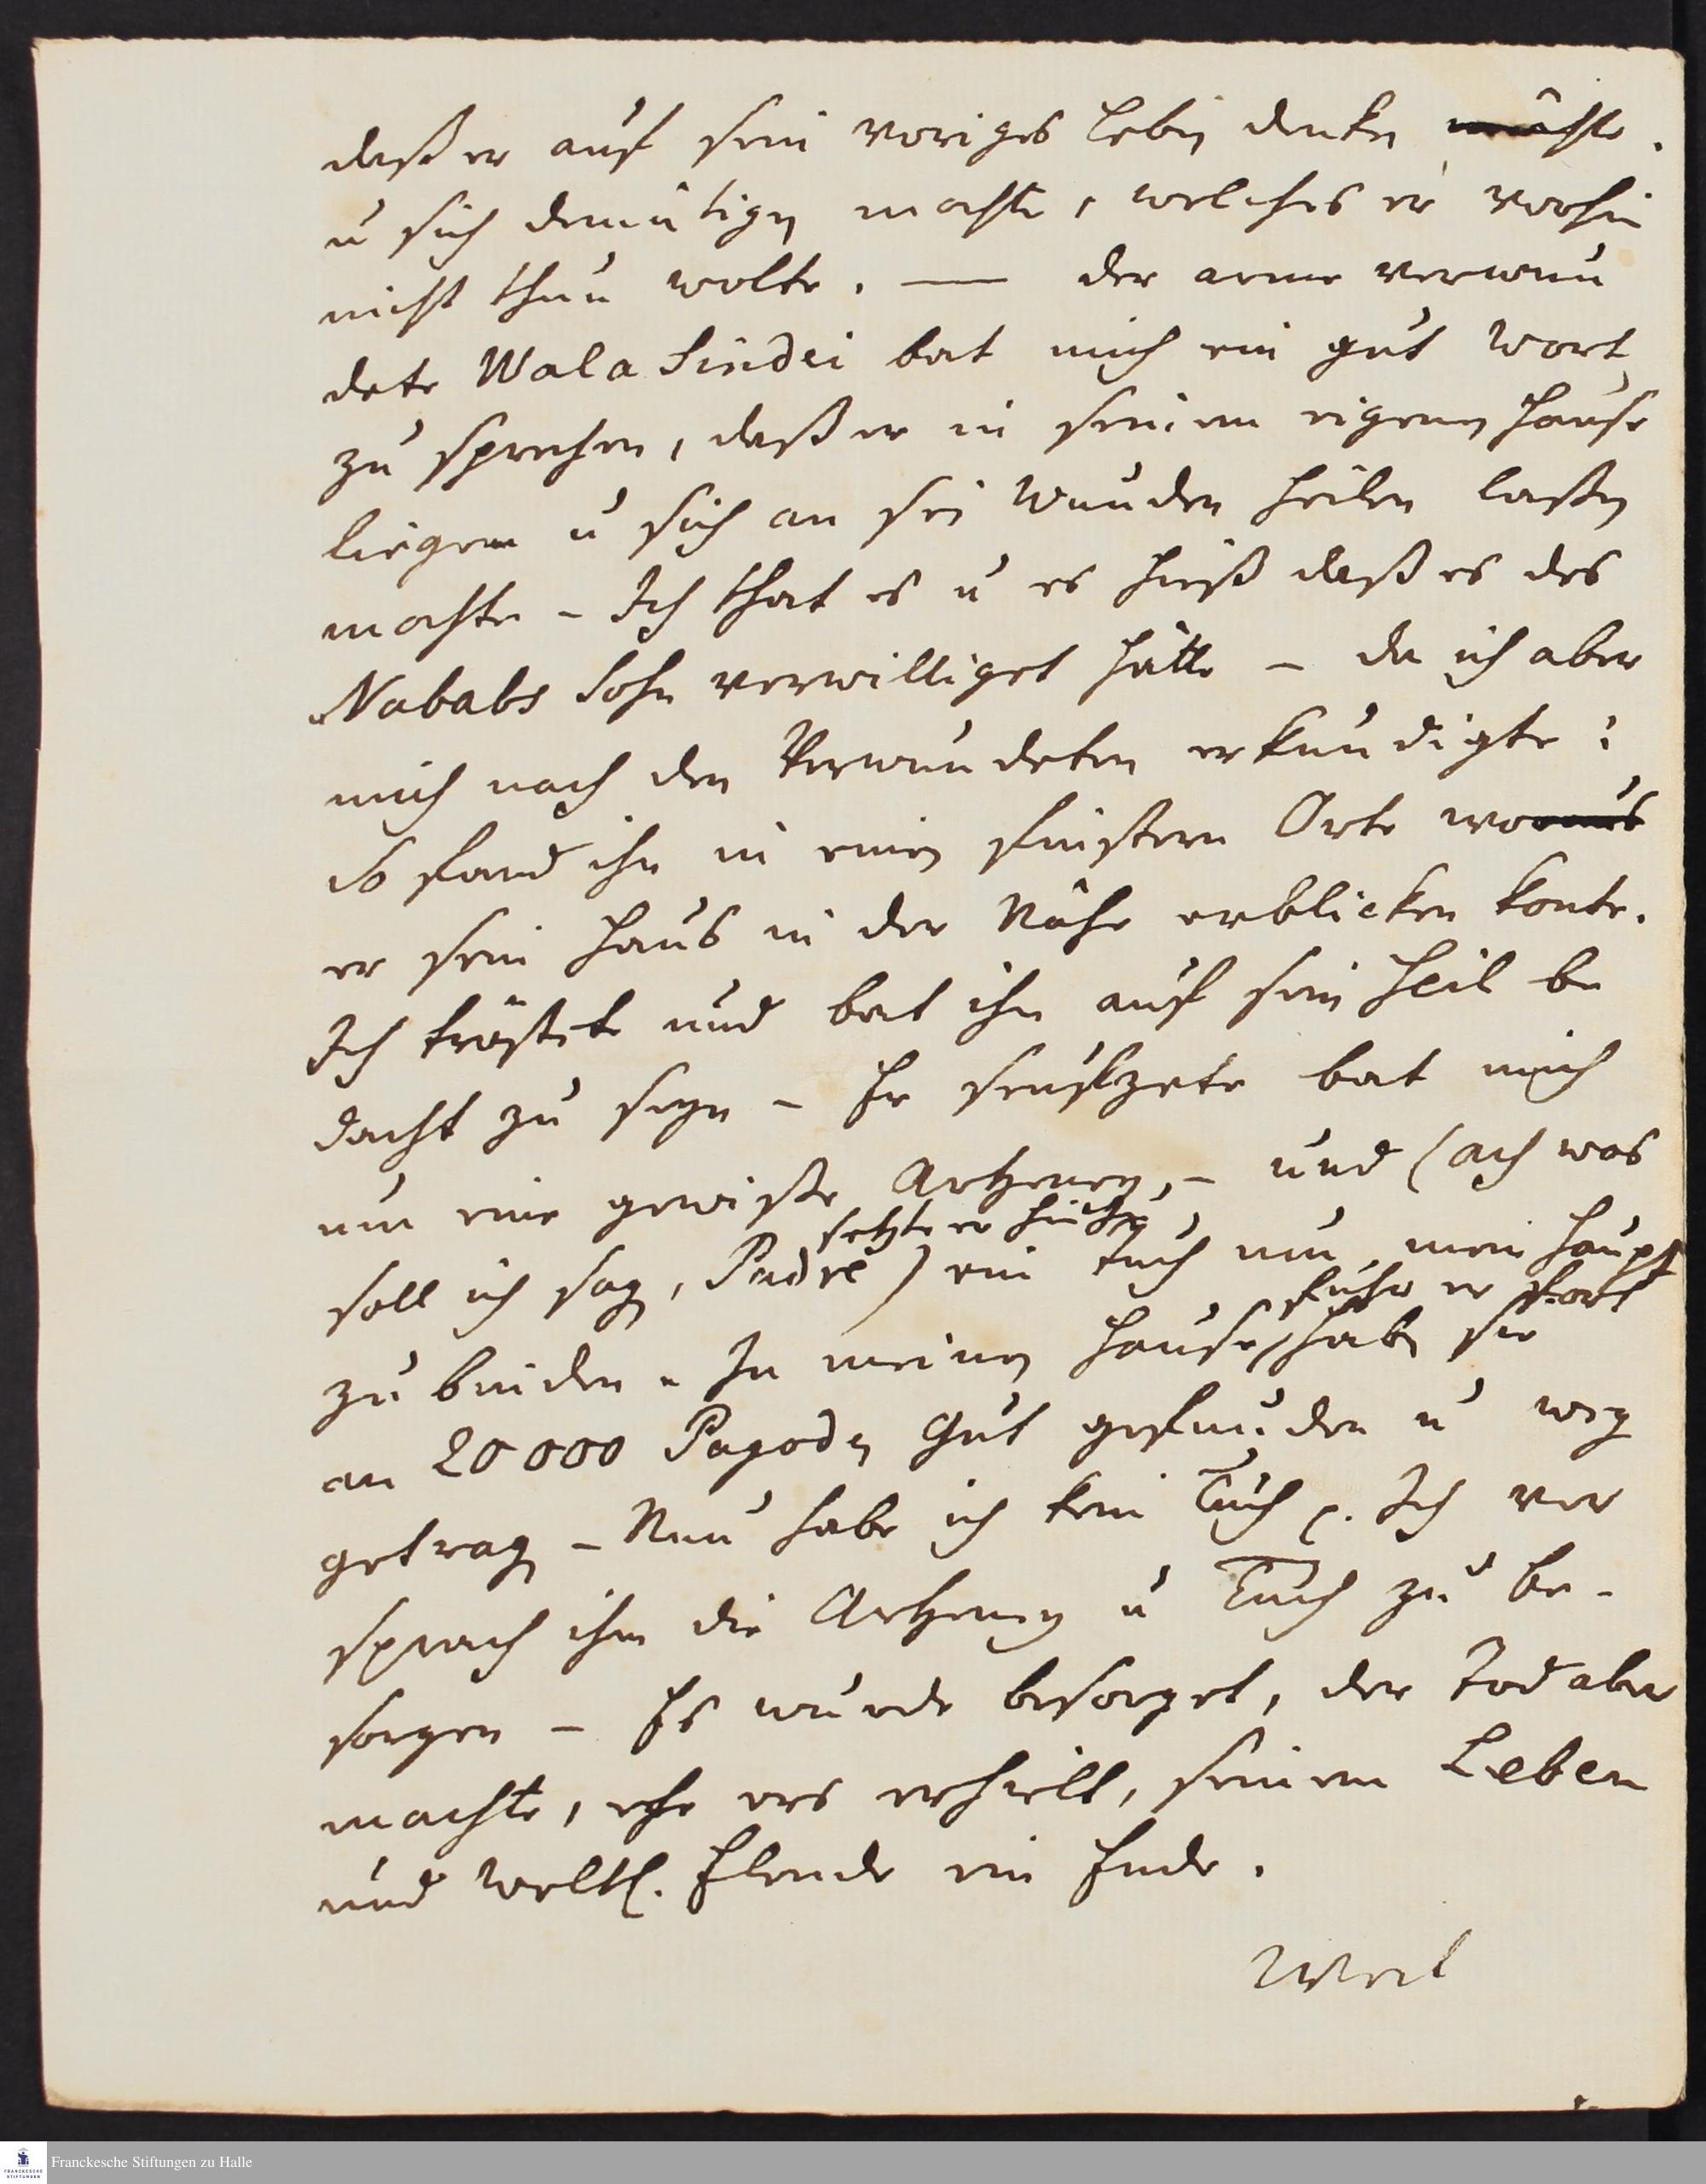 daß er auf sein voriges Leben denken möchte.
u sich demütigen mochte, welches er vorhin
nicht thun wolte. — der arme verwun
dete Wala Sindei bat mich ein gut Wort
zu sprechen, daß er in seinem eigenen Hause
liegen u sich an sei Wunden heilen laßen
mochte - Ich that es u es hieß daß es des
Nababs Sohn verwilliget hätte - da ich aber
mich nach den Verwundeten erkundigte:
So fand ihn in einen finstern Orte woraus
er sein Haus in der Nähe erblicken konte.
Ich tröstete und bat ihn auf sein Heil be
dacht zu seyn - Er seufzete bat mich
um eine gewiße Artzeney, - und (ach was
soll ich sagen, Padre setzte er hinzu) ein Tuch um mein Haupt
zu binden. In meinen Hause, fuhr er fort haben sie
an 20000 Pagoden Gut gefunden u weg
getragen - Nun habe ich kein Tuch p. Ich ver
sprach ihm die Artzeney u Tuch zu be-
sorgen - Es wurde besorget, der Tod aber
machte, ehe ers erhielt, seinem Leben
und weltl. Elende ein Ende.
Franckesche Stiftungen zu Halle
FRANCKESCHE
STIFTUNGEN